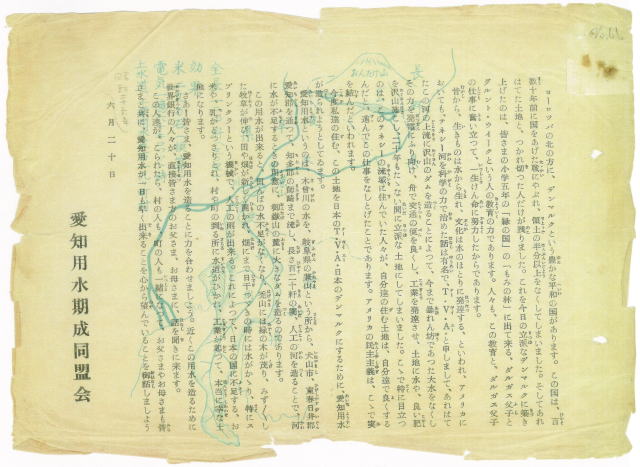 ヨーロッパの北の方に、デンマークという豊かな平和の国があります。この国は、百
数十年前に国をあげた戦にやぶれ、領土の半分以上をなくしてしまいました。そしてあれ
はてた土地と、つかれ切った人だけが残りました。これを今日の立派なデンマークに築き
上げたのは、皆さまの小学五年の「緑の国」の「もみの林」に出て来る、ダルガス父子と
グルント・ウイークという人の教育の力であります。人々も、この教育と、ダルガス父子
の仕事に奮い立つて、一生けん命に努力したからであります。
昔から、生きものは水から生れ、文化は水のほとりに発達する、といわれ、アメリカに
おいても、テネシー河を科学の力で治めた話は有名で T・V・A と申しまして、あれはて
たこの河の上流に沢山のダムを造ることによつて、今まで暴れん坊であつた大水をなくし
その力を発電にふり向け、舟で交通の便を良くし、工業を発達させ、土地に水や、良い肥
を沢山
年もたゝない間に立派な土地にしてしまいました。こゝで特に目立つ
のは、
テネシーの流域に住んでいた人々が、自分達の住む土地は、自分達で良くする
進んでこの仕事をなしとげたことであります。アメリカの民主主義は、こゝで実
を結んだといわれます。
今度私達の住む、この土地を日本のT・V・A・日本のデンマークにするために、愛知用水
が造られようとしています。
愛知用水というのは、木曾川の水を、岐阜県の兼山という所から、犬山市、東春日井郡
愛知郡を通つて、知多郡の師崎まで流し、長さ百二十粁の溝、人工の河を造ることで
に水が不足するときの用意に、御嶽山の麓に大きなダムを造るのであります。
この用水が出来ると、田んぼの水不足がなくなり、禿山には緑の木が茂り、みずみずし
た牧草が伸び、田や畑が新し
かれ、畑にまで日干つゞきの時には水がかゝり、特にス
プリンクラーという機械で、人工の雨が出来ます。これによつて、日本の国に不足する、お
米や、乳がどつさりとれ、村や町の到る所に水道がひかれ、工業が起つて、本当に幸な土
地になります。
さあ！皆さま、愛知用水を造ることに力を合わせましよう。近くこの用水を造るために
世界銀行の人々が、直接皆さま方のお父さま、お母さまに、話を聞きに来ます。
この人達が、こられたら、村の人も、町の人も一緒になつて、お父さまやお母さまも皆
さまと共に、愛知用水が一日も早く出来ることを心から望んでいることを御話しましよう
六月二十日
愛知用水期成同盟会
長
おんたけ山
電気
米